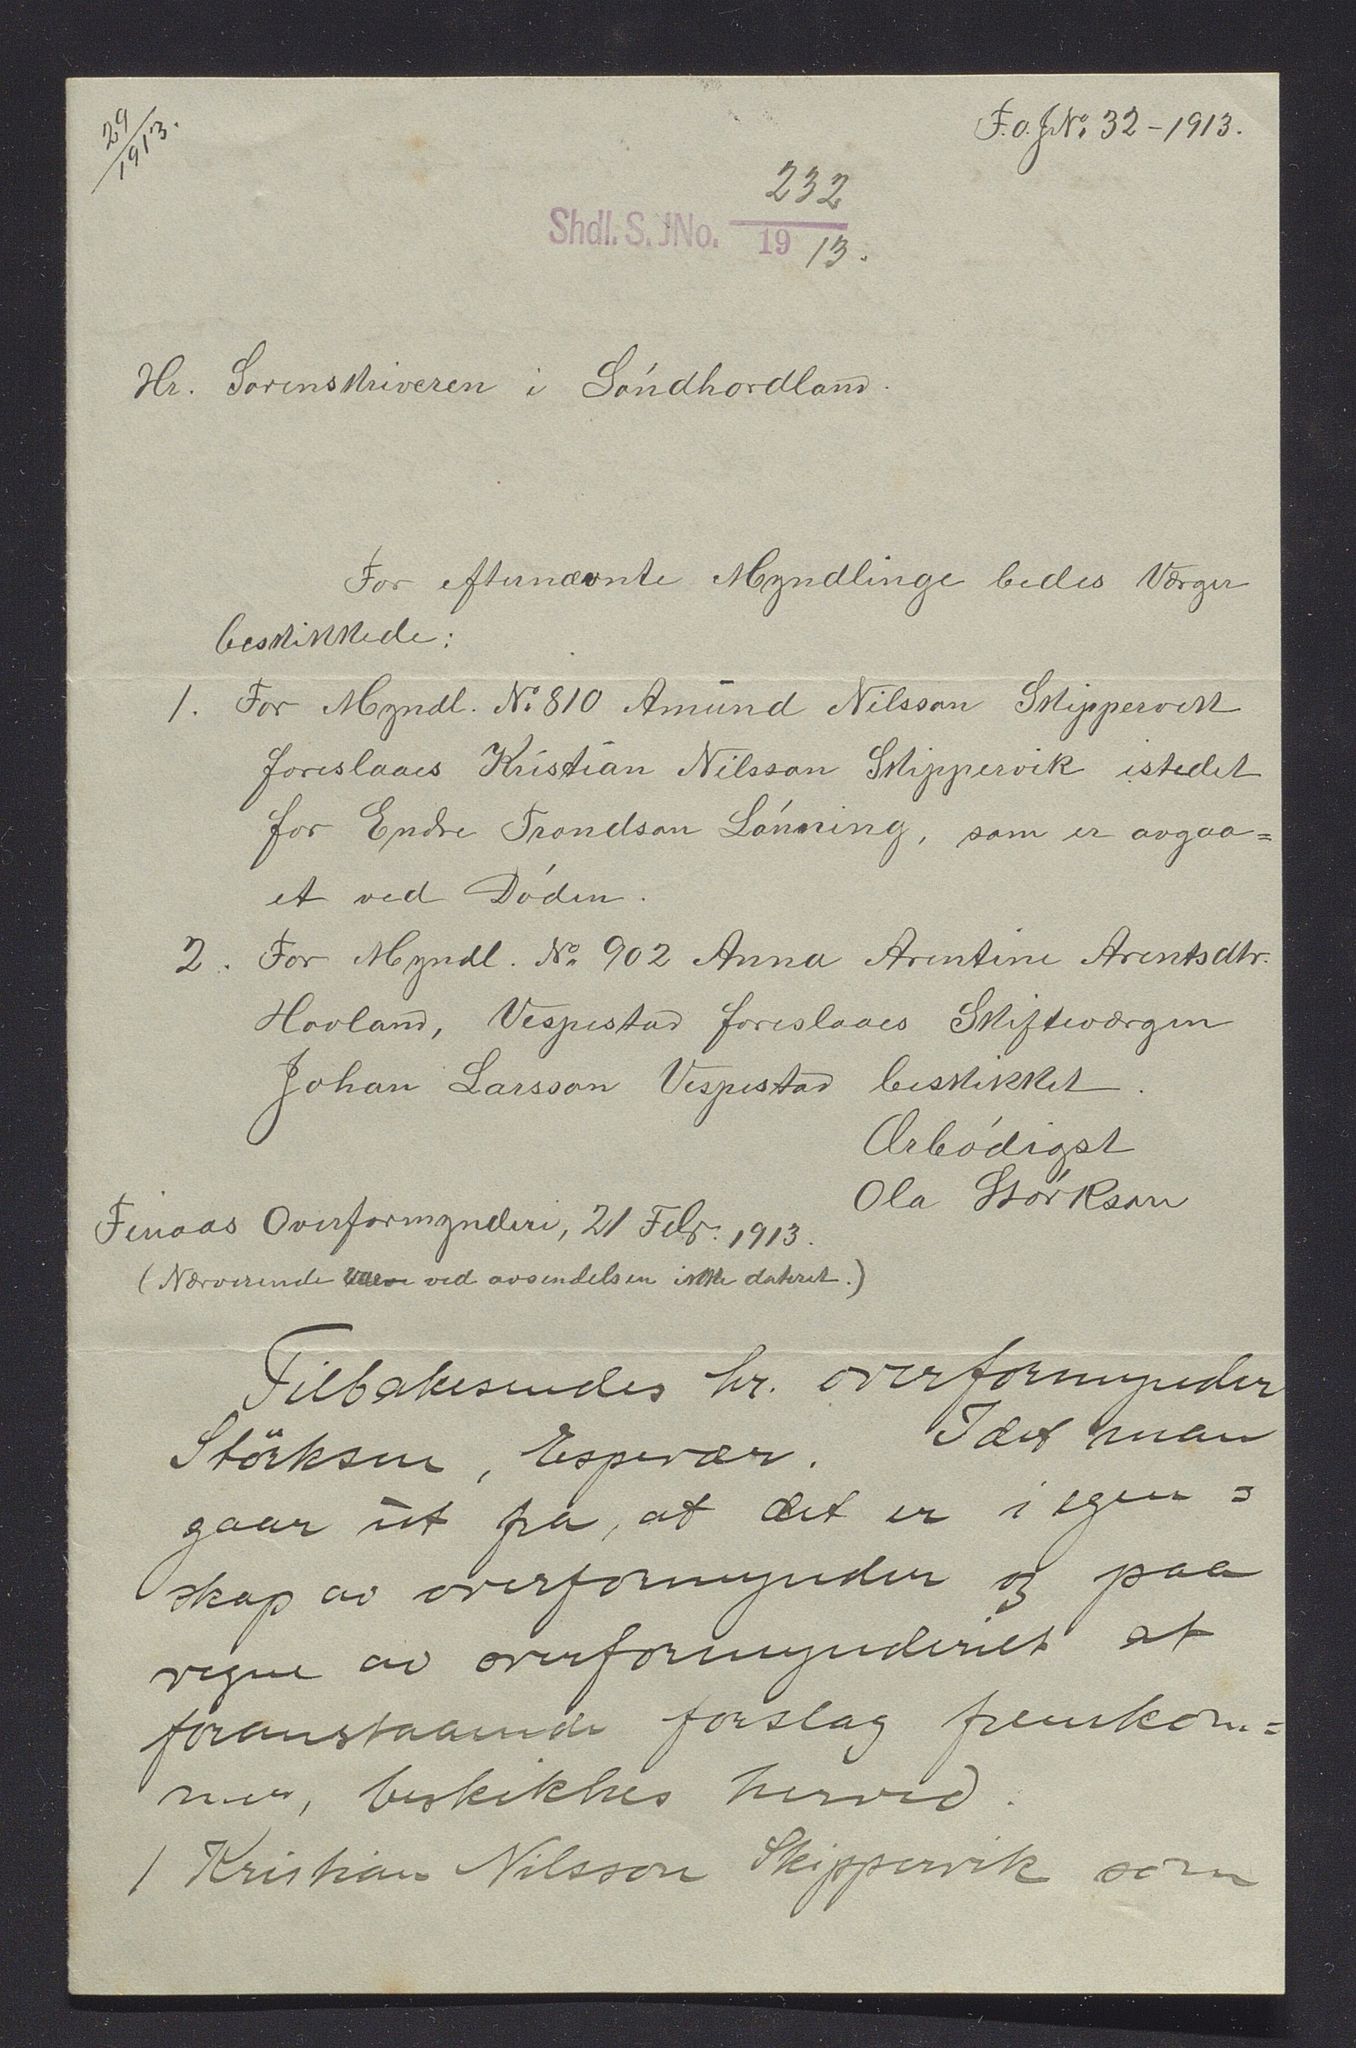 29/1913.
F.o.JNo. 32-1913.
232
Shdl. S. JNo. 19 13.
Hr. Sorenskriveren i Söndhordland.
For efternævnte Myndlinge bedes Værger
beskikkede:
1. For Myndl. No. 810 Amund Nilsson Skippervik
foreslaaes Kristian Nilsson Skippervik istedet
for Endre Trondson Lönning, som er avgaa=
et ved Döden.
2. For Myndl. No. 902 Anna Arentine Arentsdtr.
Hovland, Vespestad foreslaaes Skifteværgen
Johan Larsson Vespestad beskikket.
Ærbödigst
Ola Störkson
Finaas Overformynderi, 21 Febr. 1913.
(Nærværende ved avsendelsen ikke dateret.)
Tilbakesendes hr. overformynder
Störksen, Espevær. Idet man
gaar ut fra, at det er i egen=
skap av overformynder og paa
vegne av overformynderiet at
foranstaaende forslag fremkom=
mer, beskikkes herved.
1 Kristian Nilsson Skippervik som